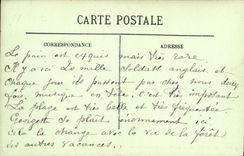 CARTE POSTALE
CORRESPONDANCE
ADRESSE
Le pain est exquis mais très rare
Il y a ici 20 mille soldats anglais et
chaque jour ils passent pas chez nous deux
fois musique en tête c'est très important
La plage est très belle et très fréquentée
Georgette se plait énormement ici
cela la change avec la vie de la forêt
des autres vacances.